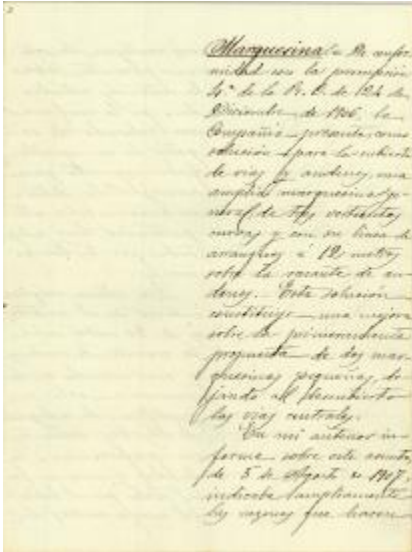 Marquesina = De confor-
midad con la prescripción
4ª de la R. O. de 124 de
Diciembre de 1906, la
Compañia presenta como
solución para la cubierta
de vias y andenes una
amplia marquesina ge-
neral de tres vertientes
nuevas y con su linea de
arranques á 12 metros
sobre la rasante de an-
denes. Esta solución
constituye una mejora
sobre la primeramente
propuesta de dos mar-
quesinas pequeñas, de-
jando al descubierto
las vias centrales.
En mi anterior in-
forme sobre este asunto,
de 5 de Agosto de 1907,
indicaba ampliamente
las razones que hacen